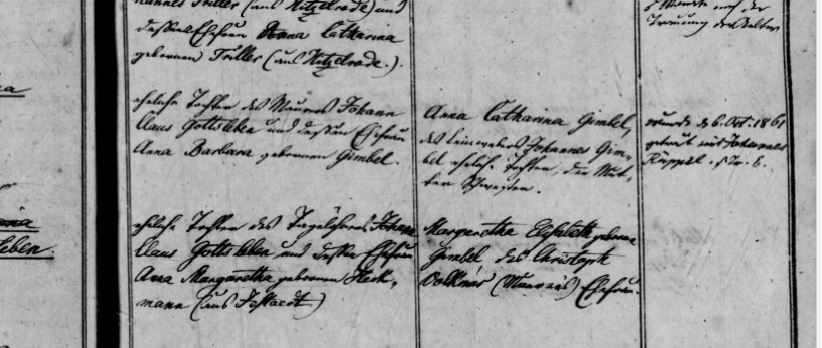 hannes Triller (aus Hitzelrode) und
dessen Ehefrau Anna Catharina
gebornen Triller (aus Hitzelrode.)
eheliche Tochter des Maurers Johann
Claus Gottsleben und dessen Ehefrau
Anna Barbara gebornen Gimbel.
eheliche Tochter des Tagelöhners Johann
Claus Gottsleben und dessen Ehefrau
Anna Margaretha gebornen Heck-
mann (aus
Anna Catharina Gimbel,
des Leinewebers Johannes Gim-
bel eheliche Tochter, der Mut-
ter Schwester.
Margaretha Elisabeth geborne
Gimbel des Christoph
Volkmar (Maurers) Ehefrau.
nach der
Trauung der Eltern
wurde d. 6. Oct. 1861
getraut mit Johannes
Rüppel. s. Tr. 6.
ana
leben.